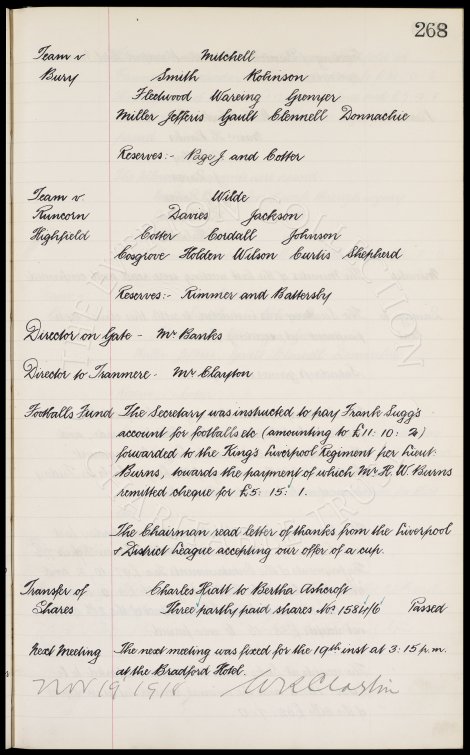 268
Team v Mitchell
Bury Smith Robinson
Fleetwood Wareing Grenyer
Miller Jefferis Gault Clennell Donnachie
Reserves:- Page J and Cotter
Team v. Wilde
Runcorn Davies Jackson
Highfield Cotter Cordall Johnson
Cosgrove Holden Wilson Curtis Shepherd
Reserves:- Rimmer and Battersby
Director on Gate - Mr Banks
Director to Tranmere - Mr Clayton
Footballs Fund The Secretary was instructed to pay Frank Sugg's
account for footballs etc (amounting to £11: 10: 2)
forwarded to the King's Liverpool Regiment per Lieut:
Burns, towards the payment of which Mr H. W. Burns
remitted cheque for £5: 15: 1.
The Chairman read letter of thanks from the Liverpool
& District League accepting our offer of a cup.
Transfer of Charles Hiatt to Bertha Ashcroft
Shares Three partly paid shares No. 1584/6 Passed
Next Meeting The next meeting was fixed for the 19th inst at 3:15 p.m.
at the Bradford Hotel.
Nov 19